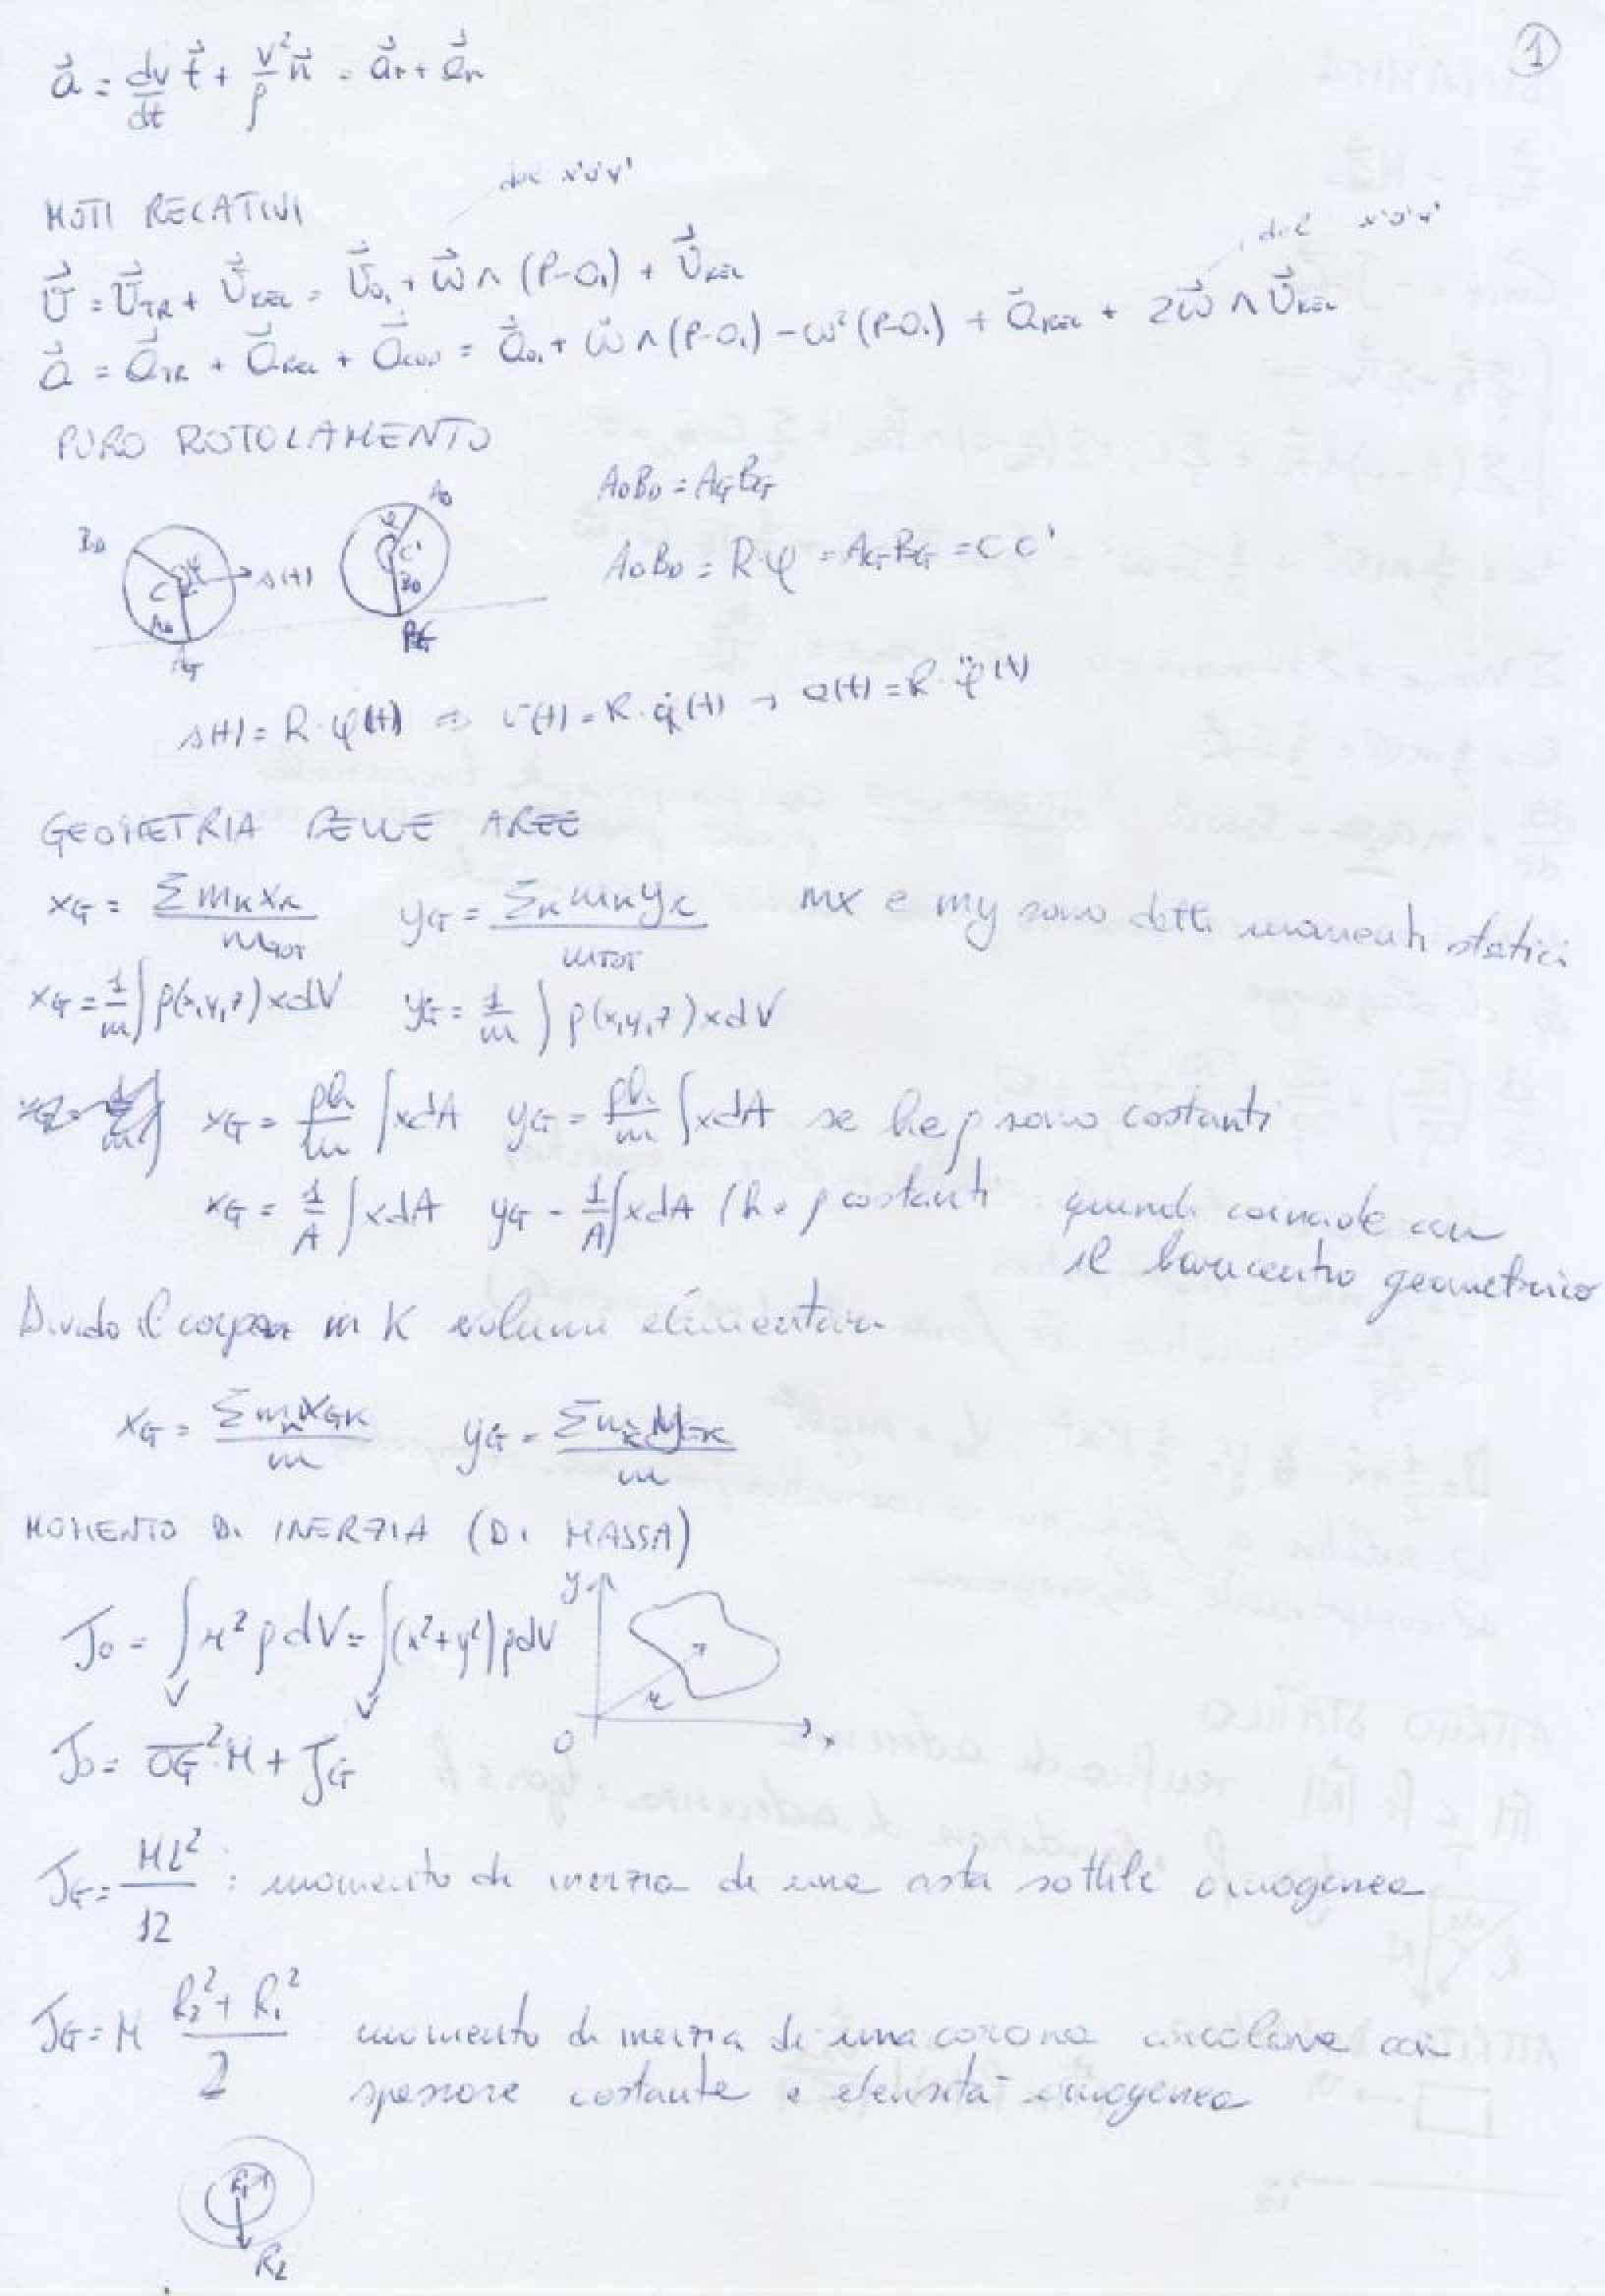 1
a⃗ = dv/dt t⃗ + v²/ρ n⃗ = a⃗t + a⃗n
MOTI RELATIVI
del x'o'y'
v⃗ = v⃗TR + v⃗REL = v⃗O1 + ω⃗ ∧ (P-O1) + v⃗REL
del x'o'y'
a⃗ = a⃗TR + a⃗REL + a⃗COR = a⃗O1 + ω̇ ∧ (P-O1) - ω²(P-O1) + a⃗REL + 2ω⃗ ∧ v⃗REL
PURO ROTOLAMENTO
A0B0 = AGBG
A0B0 = Rφ = AGBG = CC'
B0 C φ A0 AG s(t)
A0 φ C' B0 BG
s(t) = R·φ(t) ⇒ v(t) = R·φ̇(t) → a(t) = R·φ̈(t)
GEOMETRIA DELLE AREE
xG = ΣmKxK/mTOT yG = ΣKmKyK/mTOT mx e my sono detti momenti statici
xG = 1/m ∫ρ(x,y,z)xdV yG = 1/m ∫ρ(x,y,z)xdV
xG = ρh/m ∫xdA yG = ρh/m ∫xdA se h e ρ sono costanti
xG = 1/A ∫xdA yG = 1/A ∫xdA (h e ρ costanti quindi coincide con
il baricentro geometrico
Divido il corpo in K volumi elementari
xG = ΣmKxGK/m yG = ΣmKyGK/m
MOMENTO DI INERZIA (DI MASSA)
JO = ∫r²ρdV = ∫(x²+y²)ρdV
y r O x
JO = OG²·M + JG
JG = ML²/12 : momento di inerzia di una asta sottile omogenea
JG = M R2²+R1²/2 momento di inerzia di una corona circolare con
spessore costante e densità omogenea
R1
R2